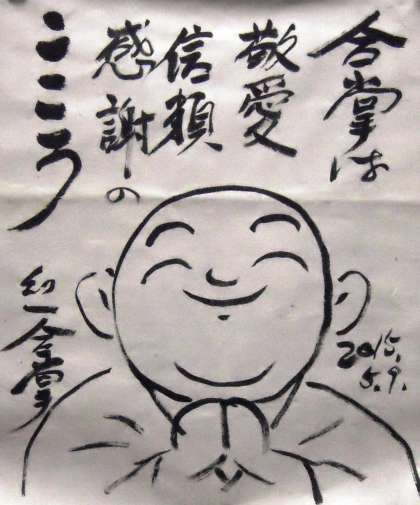 合掌は
敬愛
信頼
感謝の
こころ
和一合掌
2015.
5.9.